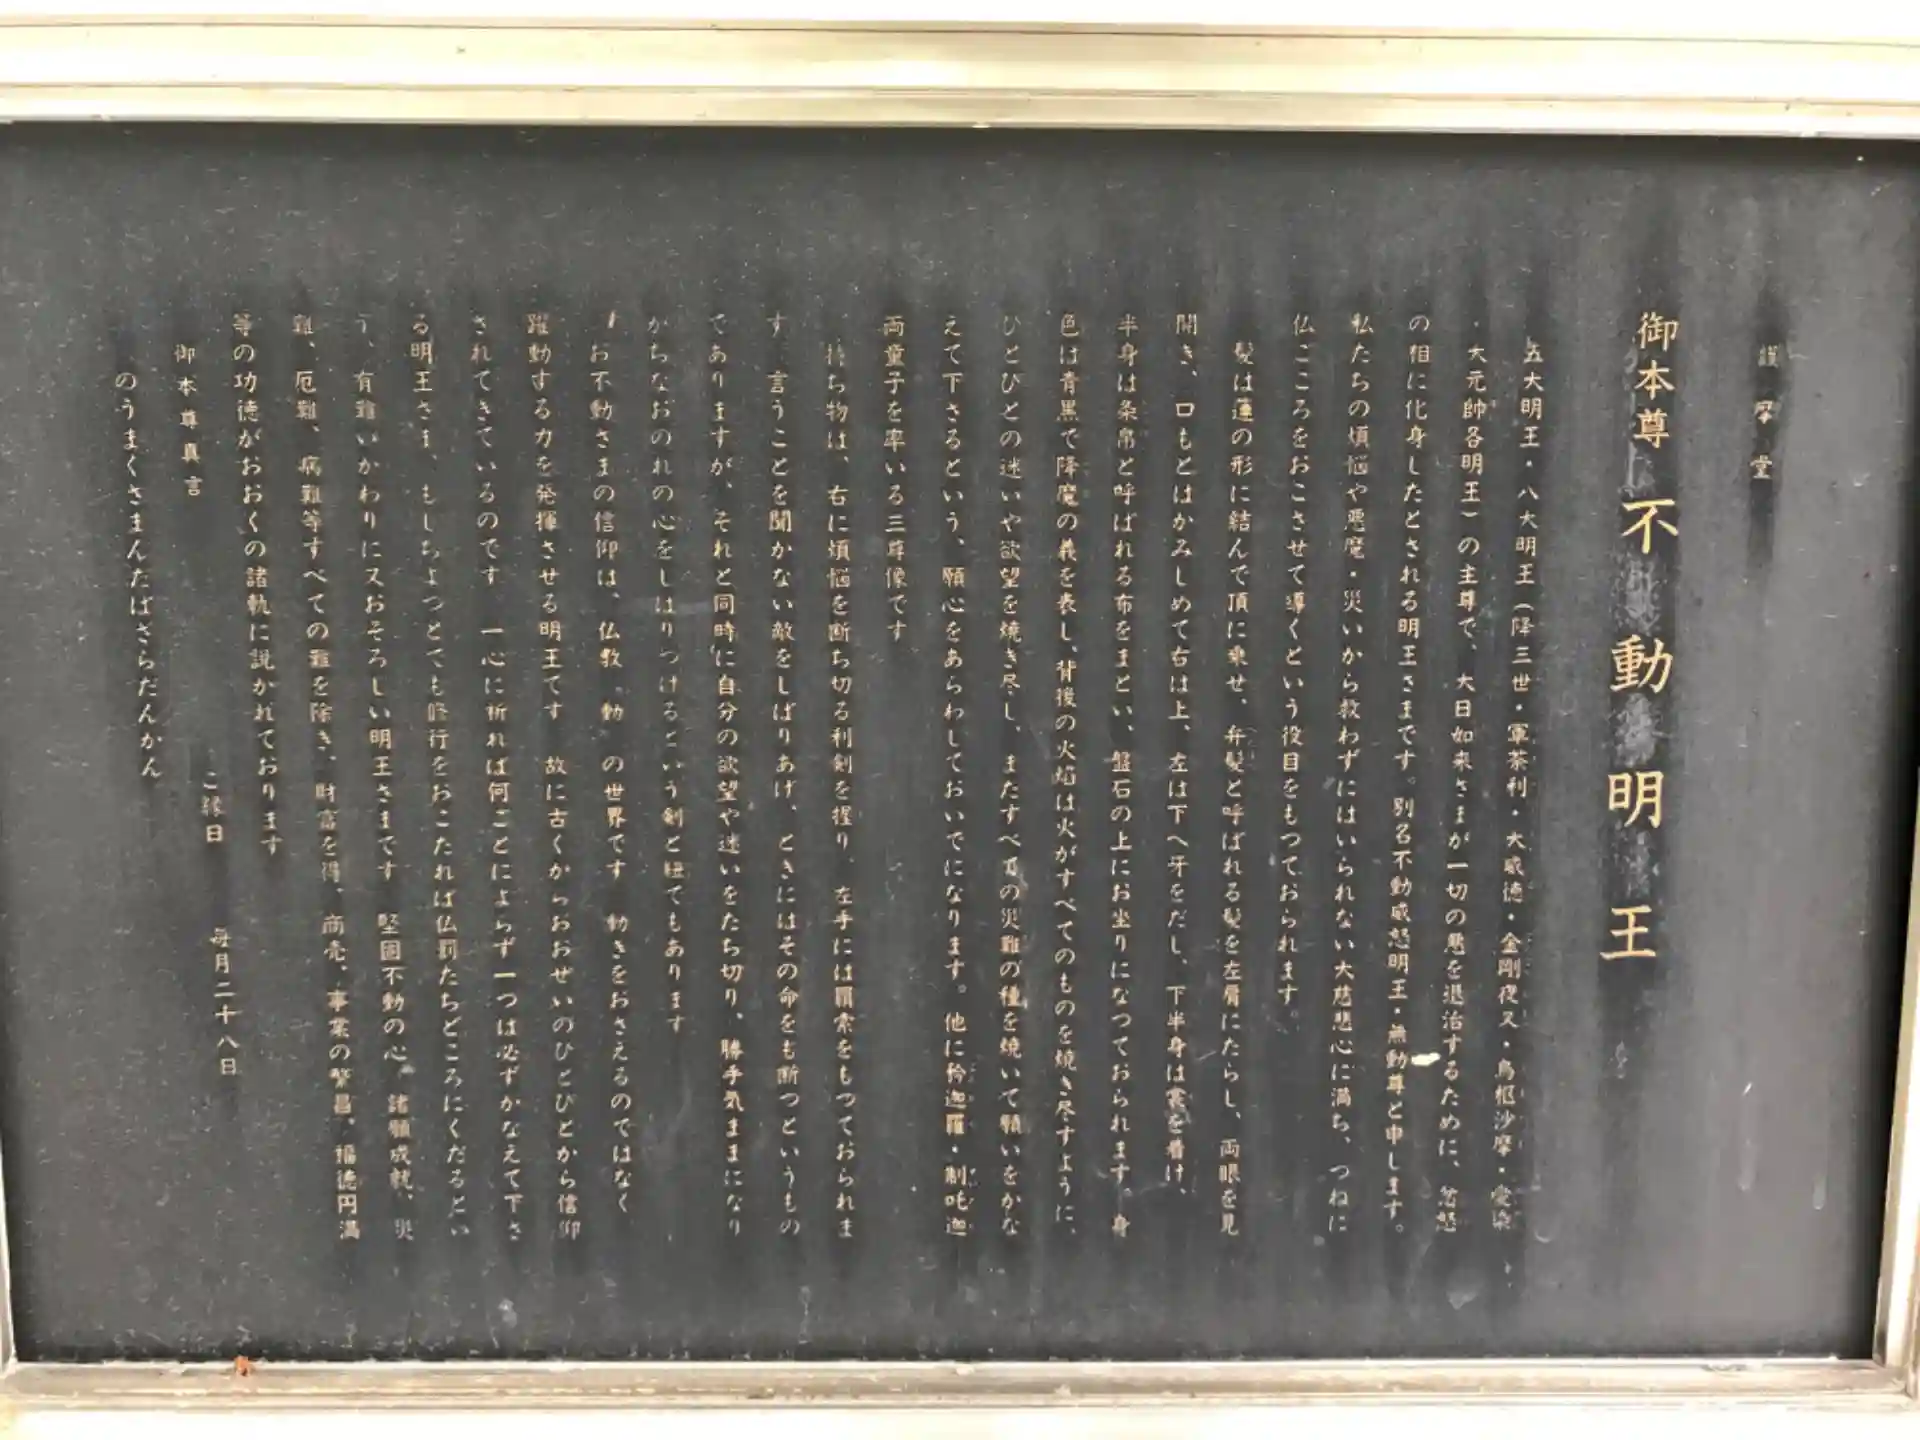 護摩堂
御本尊 不動明王
五大明王・八大明王(降三世・軍荼利・大威徳・金剛夜叉・烏枢沙摩・愛染
・大元帥各明王)の主尊で、大日如来さまが一切の悪を退治するために、忿怒
の相に化身したとされる明王さまです。別名不動威怒明王・無動尊と申します。
私たちの煩悩や悪魔・災いから救わずにはいられない大慈悲心に満ち、つねに
仏こころをおこさせて導くという役目をもつておられます。
髪は蓮の形に結んで頂に乗せ、弁髪と呼ばれる髪を左肩にたらし、両眼を見
開き、口もとはかみしめて右は上、左は下へ牙をだし、下半身は裳を着け、
半身は条帛と呼ばれる布をまとい、盤石の上にお坐りになつておられます。身
色は青黒で降魔の義を表し、背後の火焔は火がすべてのものを焼き尽すように、
ひとびとの迷いや欲望を焼き尽し、またすべての災難の種を焼いて願いをかな
えて下さるという、願心をあらわしておいでになります。他に矜迦羅・制吒迦
両童子を率いる三尊像です
持ち物は、右に煩悩を断ち切る利剣を握り、左手には羂索をもつておられま
す 言うことを聞かない敵をしばりあげ、ときにはその命をも断つというもの
でありますが、それと同時に自分の欲望や迷いをたち切り、勝手気ままになり
がちなおのれの心をしばりつけるという剣と紐でもあります
お不動さまの信仰は、仏教〝動〟の世界です 動きをおさえるのではなく
躍動する力を発揮させる明王です 故に古くからおおせいのひとびとから信仰
されてきているのです 一心に祈れば何ごとによらず一つは必ずかなえて下さ
る明王さま、もしちよつとでも修行をおこたれば仏罰たちどころにくだるとい
う、有難いかわりに又おそろしい明王さまです 堅固不動の心。諸願成就、災
難、厄難、病難等すべての難を除き、財富を得、商売、事業の繁昌。福徳円満
等の功徳がおおくの諸軌に説かれております
御本尊真言 ご縁日 毎月二十八日
のうまくさまんだばさらだんかん